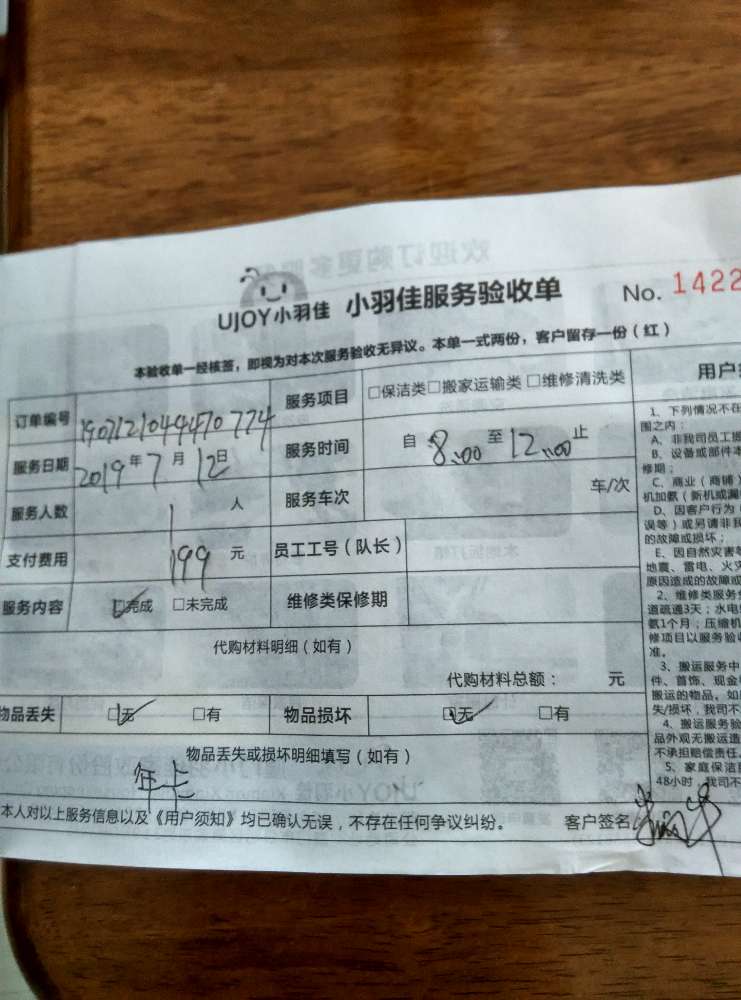 UJOY小羽佳 小羽佳服务验收单 No. 1422
本验收单一经核签，即视为对本次服务验收无异议。本单一式两份，客户留存一份（红）
订单编号 19071210449470774 服务项目 □保洁类□搬家运输类□维修清洗类
服务日期 2019年7月12日 服务时间 自 8:00 至 12:00 止
服务人数 1 人 服务车次 车/次
支付费用 199 元 员工工号（队长）
服务内容 ☑完成 □未完成 维修类保修期
代购材料明细（如有）
代购材料总额： 元
物品丢失 ☑无 □有 物品损坏 ☑无 □有
物品丢失或损坏明细填写（如有）
年卡
本人对以上服务信息以及《用户须知》均已确认无误，不存在任何争议纠纷。 客户签名
用户
1、下列情况不在
围之内：
A、非我司员工
B、设备或部件本
修期；
C、商业（商铺）
机加氨（新机或漏
D、因客户行为（
误等）或另请非我
的故障或损坏；
E、因自然灾害等
地震、雷电、火灾
原因造成的故障或
2、维修类服务
道疏通3天；水电
氨1个月；压缩机
修项目以服务验收
准。
3、搬运服务中
件、首饰、现金
搬运的物品。如
失/损坏，我司不
4、搬运服务验
品外观无搬运造
不承担赔偿责任。
5、家庭保洁
48小时，我司不
欢迎订购更多服